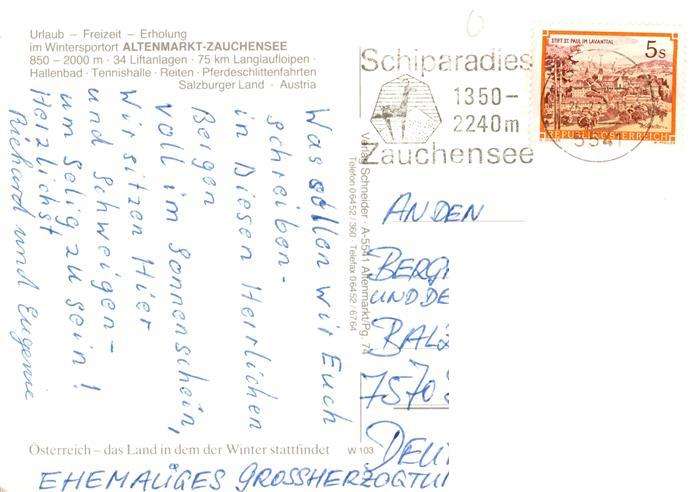 Urlaub – Freizeit – Erholung
im Wintersportort ALTENMARKT-ZAUCHENSEE
850 – 2000 m · 34 Liftanlagen · 75 km Langlaufloipen ·
Hallenbad · Tennishalle · Reiten · Pferdeschlittenfahrten
Salzburger Land · Austria
Was sollen wir Euch
schreiben –
in Diesen Herrlichen
Bergen
voll im Sonnenschein,
Wir sitzen Hier
und schweigen –
um selig zu sein!
Herzlichst
Richard und Eugenie
Österreich – das Land in dem der Winter stattfindet
W 103
Verlag Schneider · A-5541 Altenmarkt/Pg. 74
Telefon 06452 / 360 · Telefax 06452 / 6764
Schiparadies
1350 –
2240 m
Zauchensee
STIFT ST. PAUL IM LAVANTTAL
5 S
REPUBLIK ÖSTERREICH
5541
AN DEN
BERG
UND DE
BAL
7570
DEU
EHEMALIGES GROSSHERZOGTU